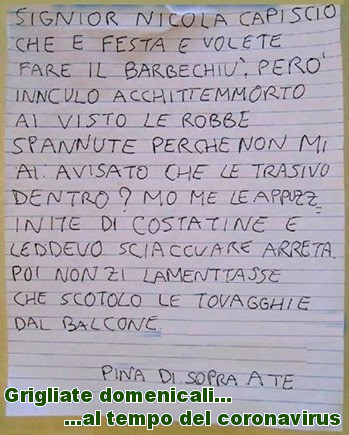 SIGNIOR NICOLA CAPISCIO
CHE E FESTA E VOLETE
FARE IL BARBECHIÙ, PERÒ
INNCULO ACCHITTEMMORTO
AI VISTO LE ROBBE
SPANNUTE PERCHE NON MI
AI AVISATO CHE LE TRASIVO
DENTRO? MO ME LE APPUZZ
INITE DI COSTATINE E
LEDDEVO SCIACCUARE ARRETA.
POI NON ZI LAMENTTASSE
CHE SCOTOLO LE TOVAGGHIE
DAL BALCONE.
PINA DI SOPRA A TE
Grigliate domenicali...
...al tempo del coronavirus